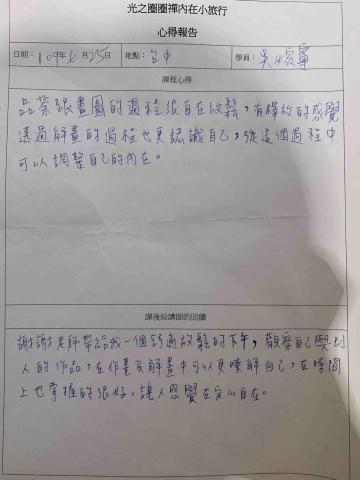 光之圈圈禪內在小旅行
心得報告
日期：109年6月25日 地點：台中 學員：吳寧
課程心得
品茶跟畫圖的過程很自在放鬆，有釋放的感覺
透過解畫的過程也更認識自己，從這個過程中
可以調整自己的內在。
課後給講師的回饋
謝謝老師帶給我一個舒適放鬆的下午，觀察自己與別
人的作品，在作畫及解畫中可以更瞭解自己，在時間
上也掌握的很好，讓人感覺在安心自在。